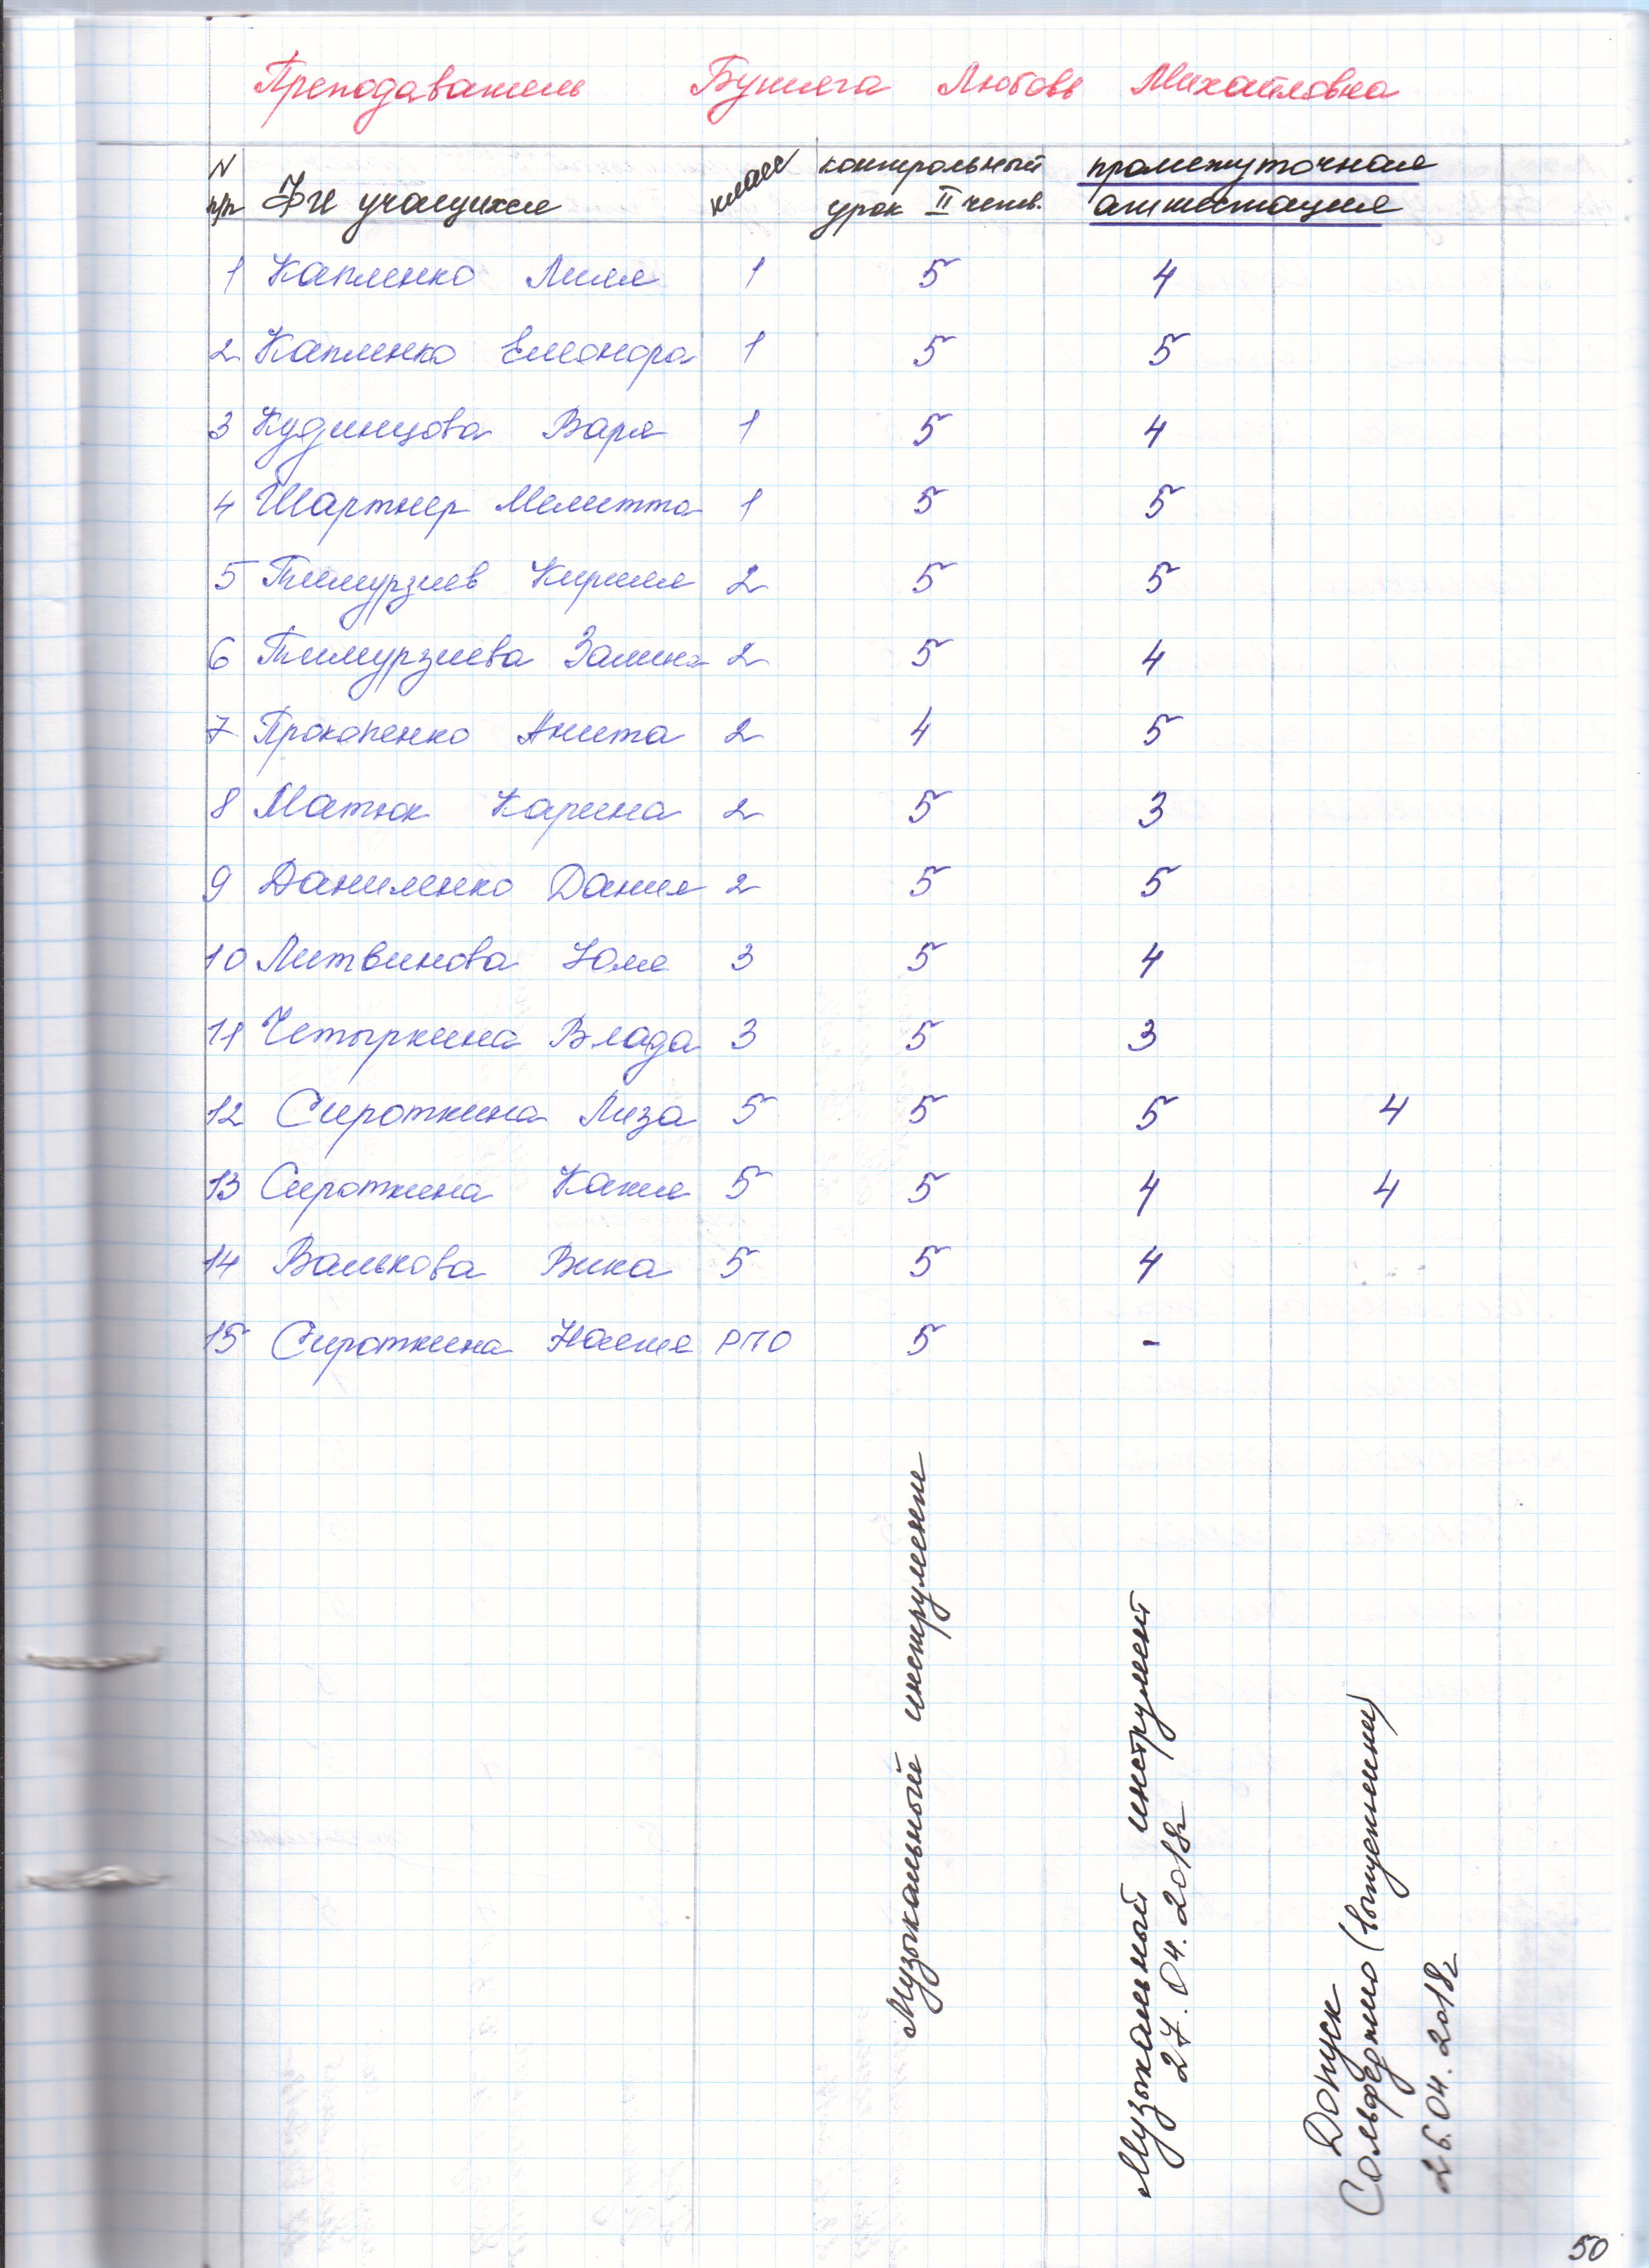 Преподаватель Бушлега Любовь Михайловна
N п/п ФИ учащихся класс контрольный урок II четв. промежуточная аттестация
1 Капленко Лиля 1 5 4
2 Капленко Елеонора 1 5 5
3 Кудинцова Варя 1 5 4
4 Шартнер Мелитта 1 5 5
5 Тимурзиев Кирилл 2 5 5
6 Тимурзиева Залина 2 5 4
7 Прокопенко Анита 2 4 5
8 Матюк Карина 2 5 3
9 Даниленко Данил 2 5 5
10 Литвинова Юля 3 5 4
11 Четыркина Влада 3 5 3
12 Сироткина Лиза 5 5 5 4
13 Сироткина 5 5 4 4
14 Валькова Вика 5 5 4
15 Сироткина Настя РПО 5 -
Музыкальный инструмент
Музыкальный инструмент
27.04.2018г
Допуск
Сольфеджио (выпускники)
26.04.2018г
50